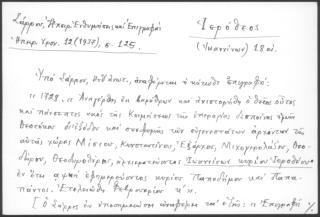 Σάρρος, Ἠπειρ. Ἐνθυμήσεις καὶ Ἐπιγραφαί
Ἠπειρ. Χρον. 12 (1937), σ. 125.
Ἱερόθεος
(Ἰωαννίνων) 18 αἰ.
Ὑπὸ Σάρρου, ἀναφέρεται ἡ κάτωθι ἐπιγραφή:
" 1728. Ἀνηγέρθη ἐκ βάθρων καὶ ἀνιστορήθη ὁ θεῖος οὗτος
καὶ πάνσεπτος ναὸς τῆς Κοιμήσεως τῆς ὑπεραγίας Δεσποίνης ἡμῶν
Θεοτόκου διεξόδου καὶ συνδρομῆς τῶν εὐγενεστάτων ἀρχόντων τῆς
αὐτῆς χώρας Μίσιου, Κωνσταντίνου, Ἐξάρχου, Μιχορηγολαίου, Θεο-
δώρου, Θεοδωροδήμου, ἀρχιερατεύοντος Ἰωαννίνων κυρίου Ἱεροθέου
ἐφημερεύοντος κυρίου Παπαδήμου καὶ Παπα-
πάντου. Ἐτελειώθη Φεβρουαρίου κ.
[Ὁ Σάρρος ἐν ὑποσημειώσει ἀναφέρει τὰ ἑξῆς: "Ἐπιγραφὴ